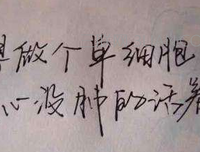 做个单细胞
心没肺的活着